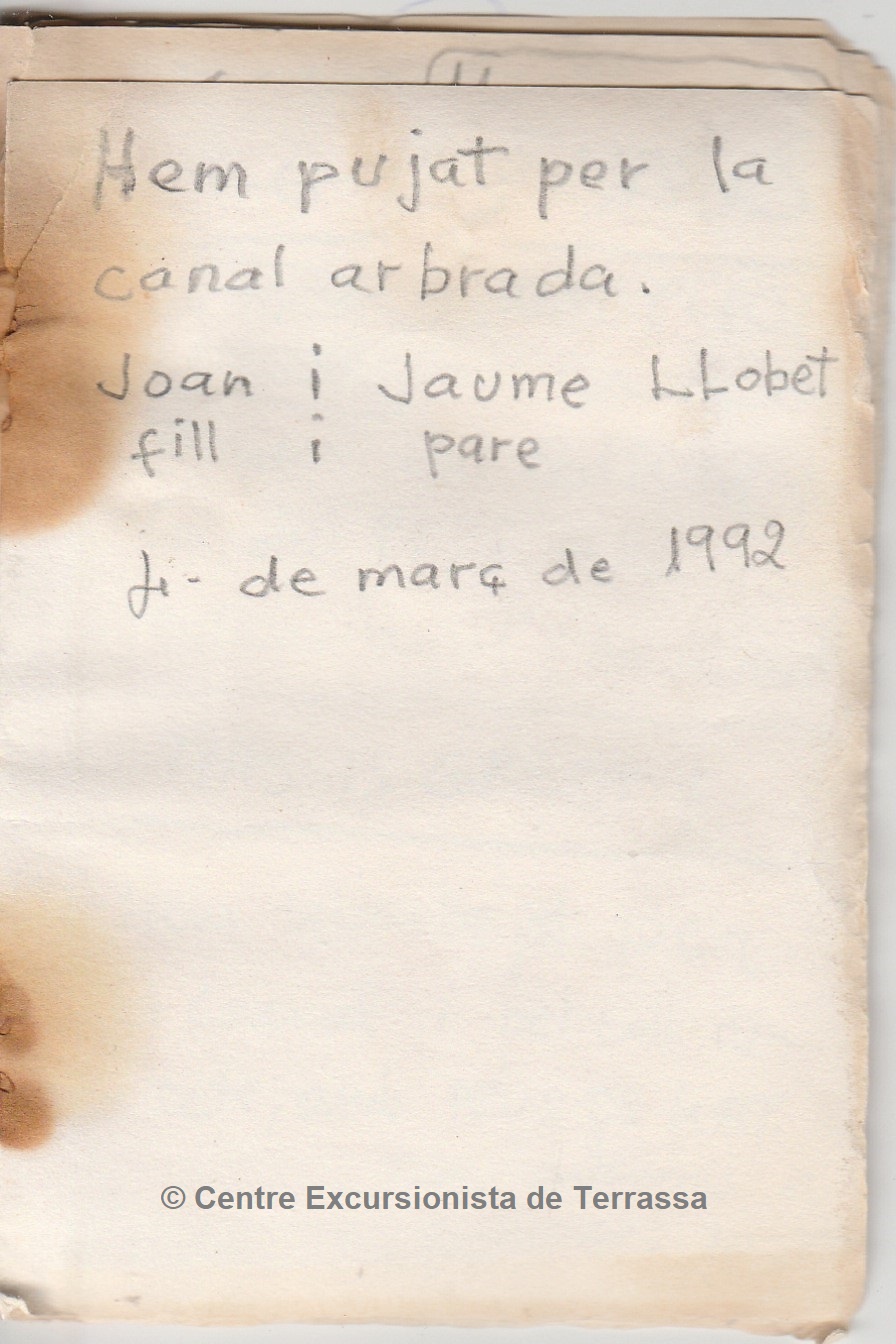 Hem pujat per la
canal arbrada.
Joan i Jaume LLobet
fill i pare
4- de març de 1992
© Centre Excursionista de Terrassa